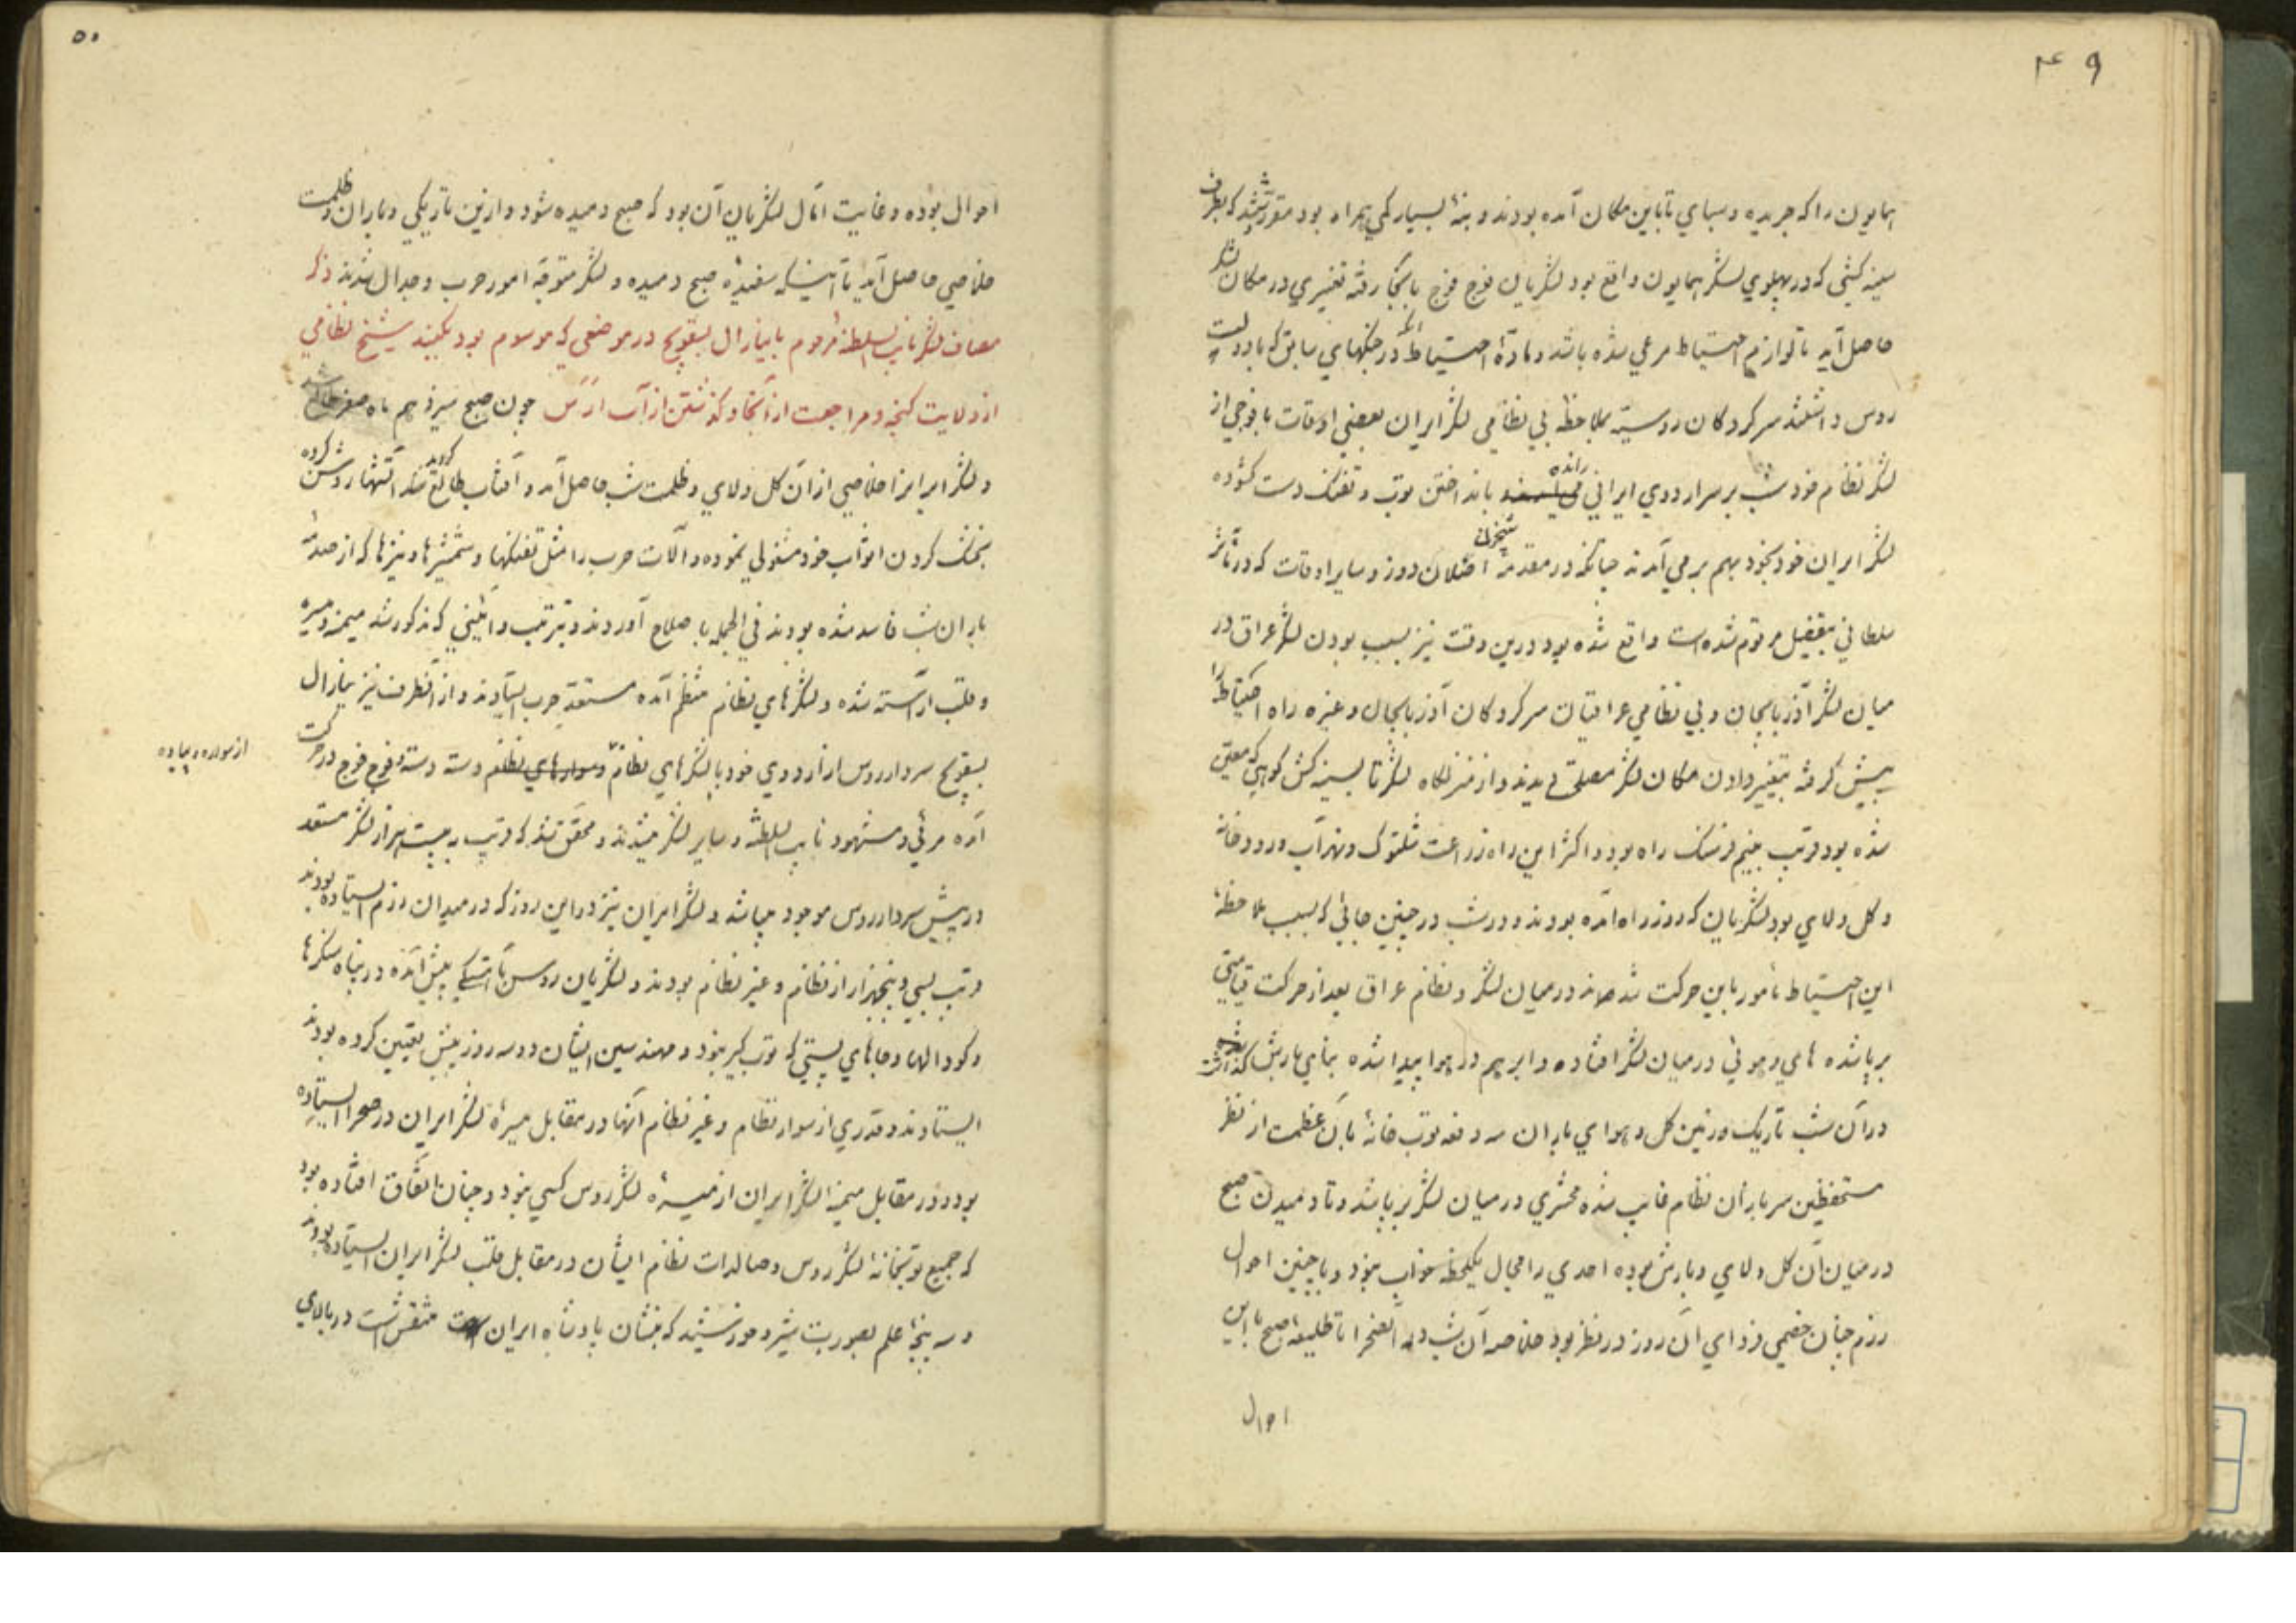 ۴۹
همایون را که جریده و سبای تا باین مکان آمده بودند و بنهٔ بسیار کمی همراه بود مقرر شد که بطرف
سینه کشی که در پهلوی لشکر همایون واقع بود لشکریان فوج فوج بانجا رفته تغییری در مکان لشکر
حاصل آید تا لوازم احتیاط مرعی شده باشد و مادهٔ احتیاط آنکه در جنگهای سابق که با دولت
روس داشتند سرکردکان روسیه بملاحظه بی نظامی لشکر ایران بعضی اوقات با فوجی از
لشکر نظام خود شب بر سر اردوی ایرانی رانده بانداختن توپ و تفنک دست کشوده
لشکر ایران خود بخود بهم بر می آمدند چنانکه در مقدمهٔ شبخون اصلان دوز و سایر اوقات که در مآثر
سلطانی بتفصیل مرقوم شده است واقع شده بود درین وقت نیز بسبب بودن لشکر عراق در
میان لشکر آذربایجان و بی نظامی عراقیان سرکردکان آذربایجان و غیره راه احتیاط را
پیش کرفته بتغییر دادن مکان لشکر مصلحت دیدند و از منزلکاه لشکر تا بسینه کش کوهی که معین
شده بود قریب بنیم فرسنک راه بود و اکثر این راه زراعت شلتوک و نهر آب و رودخانه
و کل و لای بود لشکریان که روز راه آمده بودند و در شب در چنین جائی که بسبب ملاحظهٔ
این احتیاط مامور باین حرکت شدند در میان لشکر و نظام عراق بعد از حرکت قیامتی
برپا شده های و هوئی در میان لشکر افتاده و ابر هم در هوا پیدا شده بنای بارش کذاشت
در آن شب تاریک و زمین کل و هوای باران سه دفعه توپخانهٔ بآن عظمت از نظر
مستحفظین سربازان نظام غایب شده محشری در میان لشکر برپا شد و تا دمیدن صبح
در میان آن کل و لای و بارش بوده احدی را مجال یکلحظه خواب نبود و با چنین احوال
رزم چنان خصمی فردای آن روز در نظر بود خلاصه آن شب وله الفخر تا طلیعهٔ صبح با این
احوال
۵۰
احوال بوده و غایت آمال لشکریان آن بود که صبح دمیده شود و ازین تاریکی و باران و ظلمت
خلاصی حاصل آید تا اینکه سفیدهٔ صبح دمیده و لشکر متوجه امور حرب و جدال شدند ذکر
مصاف لشکر نایب السلطنه مرحوم با ینارال بسقویج در موضعی که موسوم بود بکنبد شیخ نظامی
از ولایت کنجه و مراجعت از آنجا و کذشتن از آب ارس چون صبح سیزدهم ماه صفر
و لشکر ایران را خلاصی از آن کل و لای و ظلمت شب حاصل آمد و آفتاب طالع کردید آتشها روشن کرده
بخشک کردن اثواب خود مشغولی نموده و آلات حرب را مثل تفنکها و شمشیرها و نیزها که از صدمهٔ
باران شب فاسد شده بودند فی الجمله باصلاح آوردند و بترتیب و آئینی که مذکور شد میمنه و میسره
و قلب آراسته شده و لشکرهای نظام منظم آمده مستعد حرب ایستادند و از آنطرف نیز ینارال
بسقویج سردار روس از اردوی خود با لشکرهای نظام و سوارهای نظام دسته دسته و فوج فوج در حرکت
از سواره و پیاده
آمده مرئی و مشهود نایب السلطنه و سایر لشکر میشدند و محقق شد که قریب به بیست هزار لشکر مستعد
در پیش سردار روس موجود میباشد و لشکر ایران نیز در این روز که در میدان رزم ایستاده بودند
قریب بسی و پنجهزار از نظام و غیر نظام بودند و لشکریان روس بآهستکی پیش آمده در پناه سنکرها
و کودالها و جاهای پستی که توپ کیر نبود و مهندسین ایشان دو سه روز پیش تعیین کرده بودند
ایستادند و قدری از سوار نظام و غیر نظام آنها در مقابل میسرهٔ لشکر ایران در صحرا ایستاده
بود و در مقابل میمنهٔ لشکر ایران از میسرهٔ لشکر روس کسی نبود و چنان اتفاق افتاده بود
که جمیع توپخانهٔ لشکر روس و صالدات نظام ایشان در مقابل قلب لشکر ایران ایستاده بودند
و سه پنجهٔ علم بصورت شیر و خورشید که نشان پادشاه ایران است منقش است در بالای